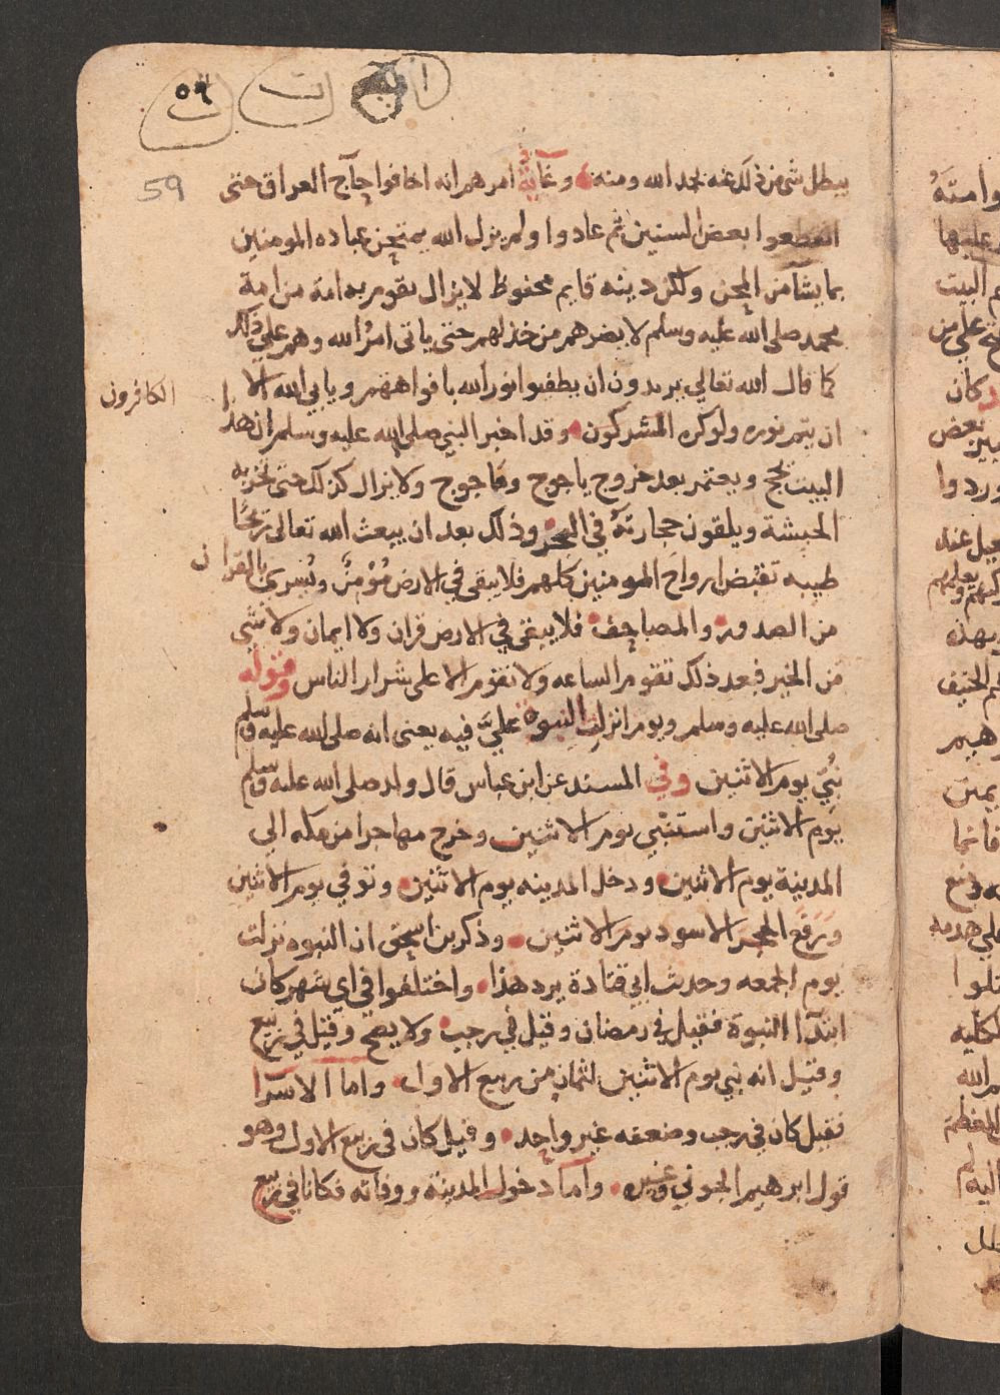 ٥٩
59
يبطل شى من ذلك عنه بحمد الله ومنه وغاية امرهم انه اخافوا حاج العراق حتى
انقطعوا بعض السنين ثم عادوا ولم يزل الله يمتحن عباده المومنين
بما يشآ من المحن ولكن دينه قايم محفوظ لا يزال يقوم به امة من امة
محمد صلى الله عليه وسلم لا يضرهم من خذلهم حتى ياتى امر الله وهم على ذلك
كما قال الله تعالى يريدون ان يطفئوا نور الله بافواههم ويابى الله الا
ان يتم نوره ولوكره المشركون وقد اخبر النبي صلى الله عليه وسلم ان هذا
الكافرون
البيت يحج ويعتمر بعد خروج ياجوج وماجوج ولا يزال كذلك حتى تخربه
الحبشة ويلقون حجارته في البحر وذلك بعد ان يبعث الله تعالى ريحًا
طيبه تقبض ارواح المومنين كلهم فلا يبقى في الارض مؤمن ويسرى بالقران
من الصدور والمصاحف فلا يبقى في الارض قران ولا ايمان ولا شي
من الخير فبعد ذلك تقوم الساعه ولا تقوم الا على شرار الناس وقوله
صلى الله عليه وسلم ويوم انزلت النبوة عليّ فيه يعنى انه صلى الله عليه وسلم
نبّي يوم الاثنين وفي المسند عن ابن عباس قال ولد صلى الله عليه وسلم
يوم الاثنين واستنبي يوم الاثنين وخرج مهاجرا من مكه الى
المدينة يوم الاثنين ودخل المدينه يوم الاثنين وتوفي يوم الاثنين
ورفع الحجر الاسود يوم الاثنين وذكر بن اسحق ان النبوه نزلت
يوم الجمعه وحديث ابي قتادة يرد هذا واختلفوا في اي شهر كان
ابتدآ النبوة فقيل في رمضان وقيل في رجب ولا يصح وقيل في ربيع
وقيل انه نبي يوم الاثنين لثمان من ربيع الاول واما الاسرا
فقيل كان في رجب وضعفه غير واحد وقيل كان في ربيع الاول وهو
قول ابرهيم الحوني وغيره واما دخول المدينة ووفاته فكانا في ربيع